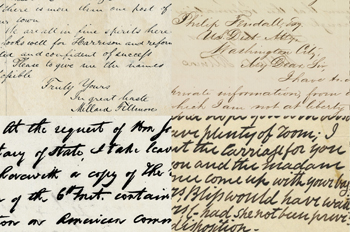 there is more than one post of
town
We are all in fine spirits here
looks well for Harrison and reform
and confident of success
Please to give me the names
possible
Truly Yours
In great haste
Millard Fillmore
Philip Fendall Esq
U.S. Dist. Atty.
Washington City.
My Dear Sir
I have re
private information, from a
which I am not at liberty
At the request of Hon. J
tary of State, I take leave
herewith a copy of the
of the 6th Inst. contain
tion on American Comm
have plenty of room; I
the carriage for you
you and the Madam
come up with your bag
Bliss would have
had she not been
disposition.